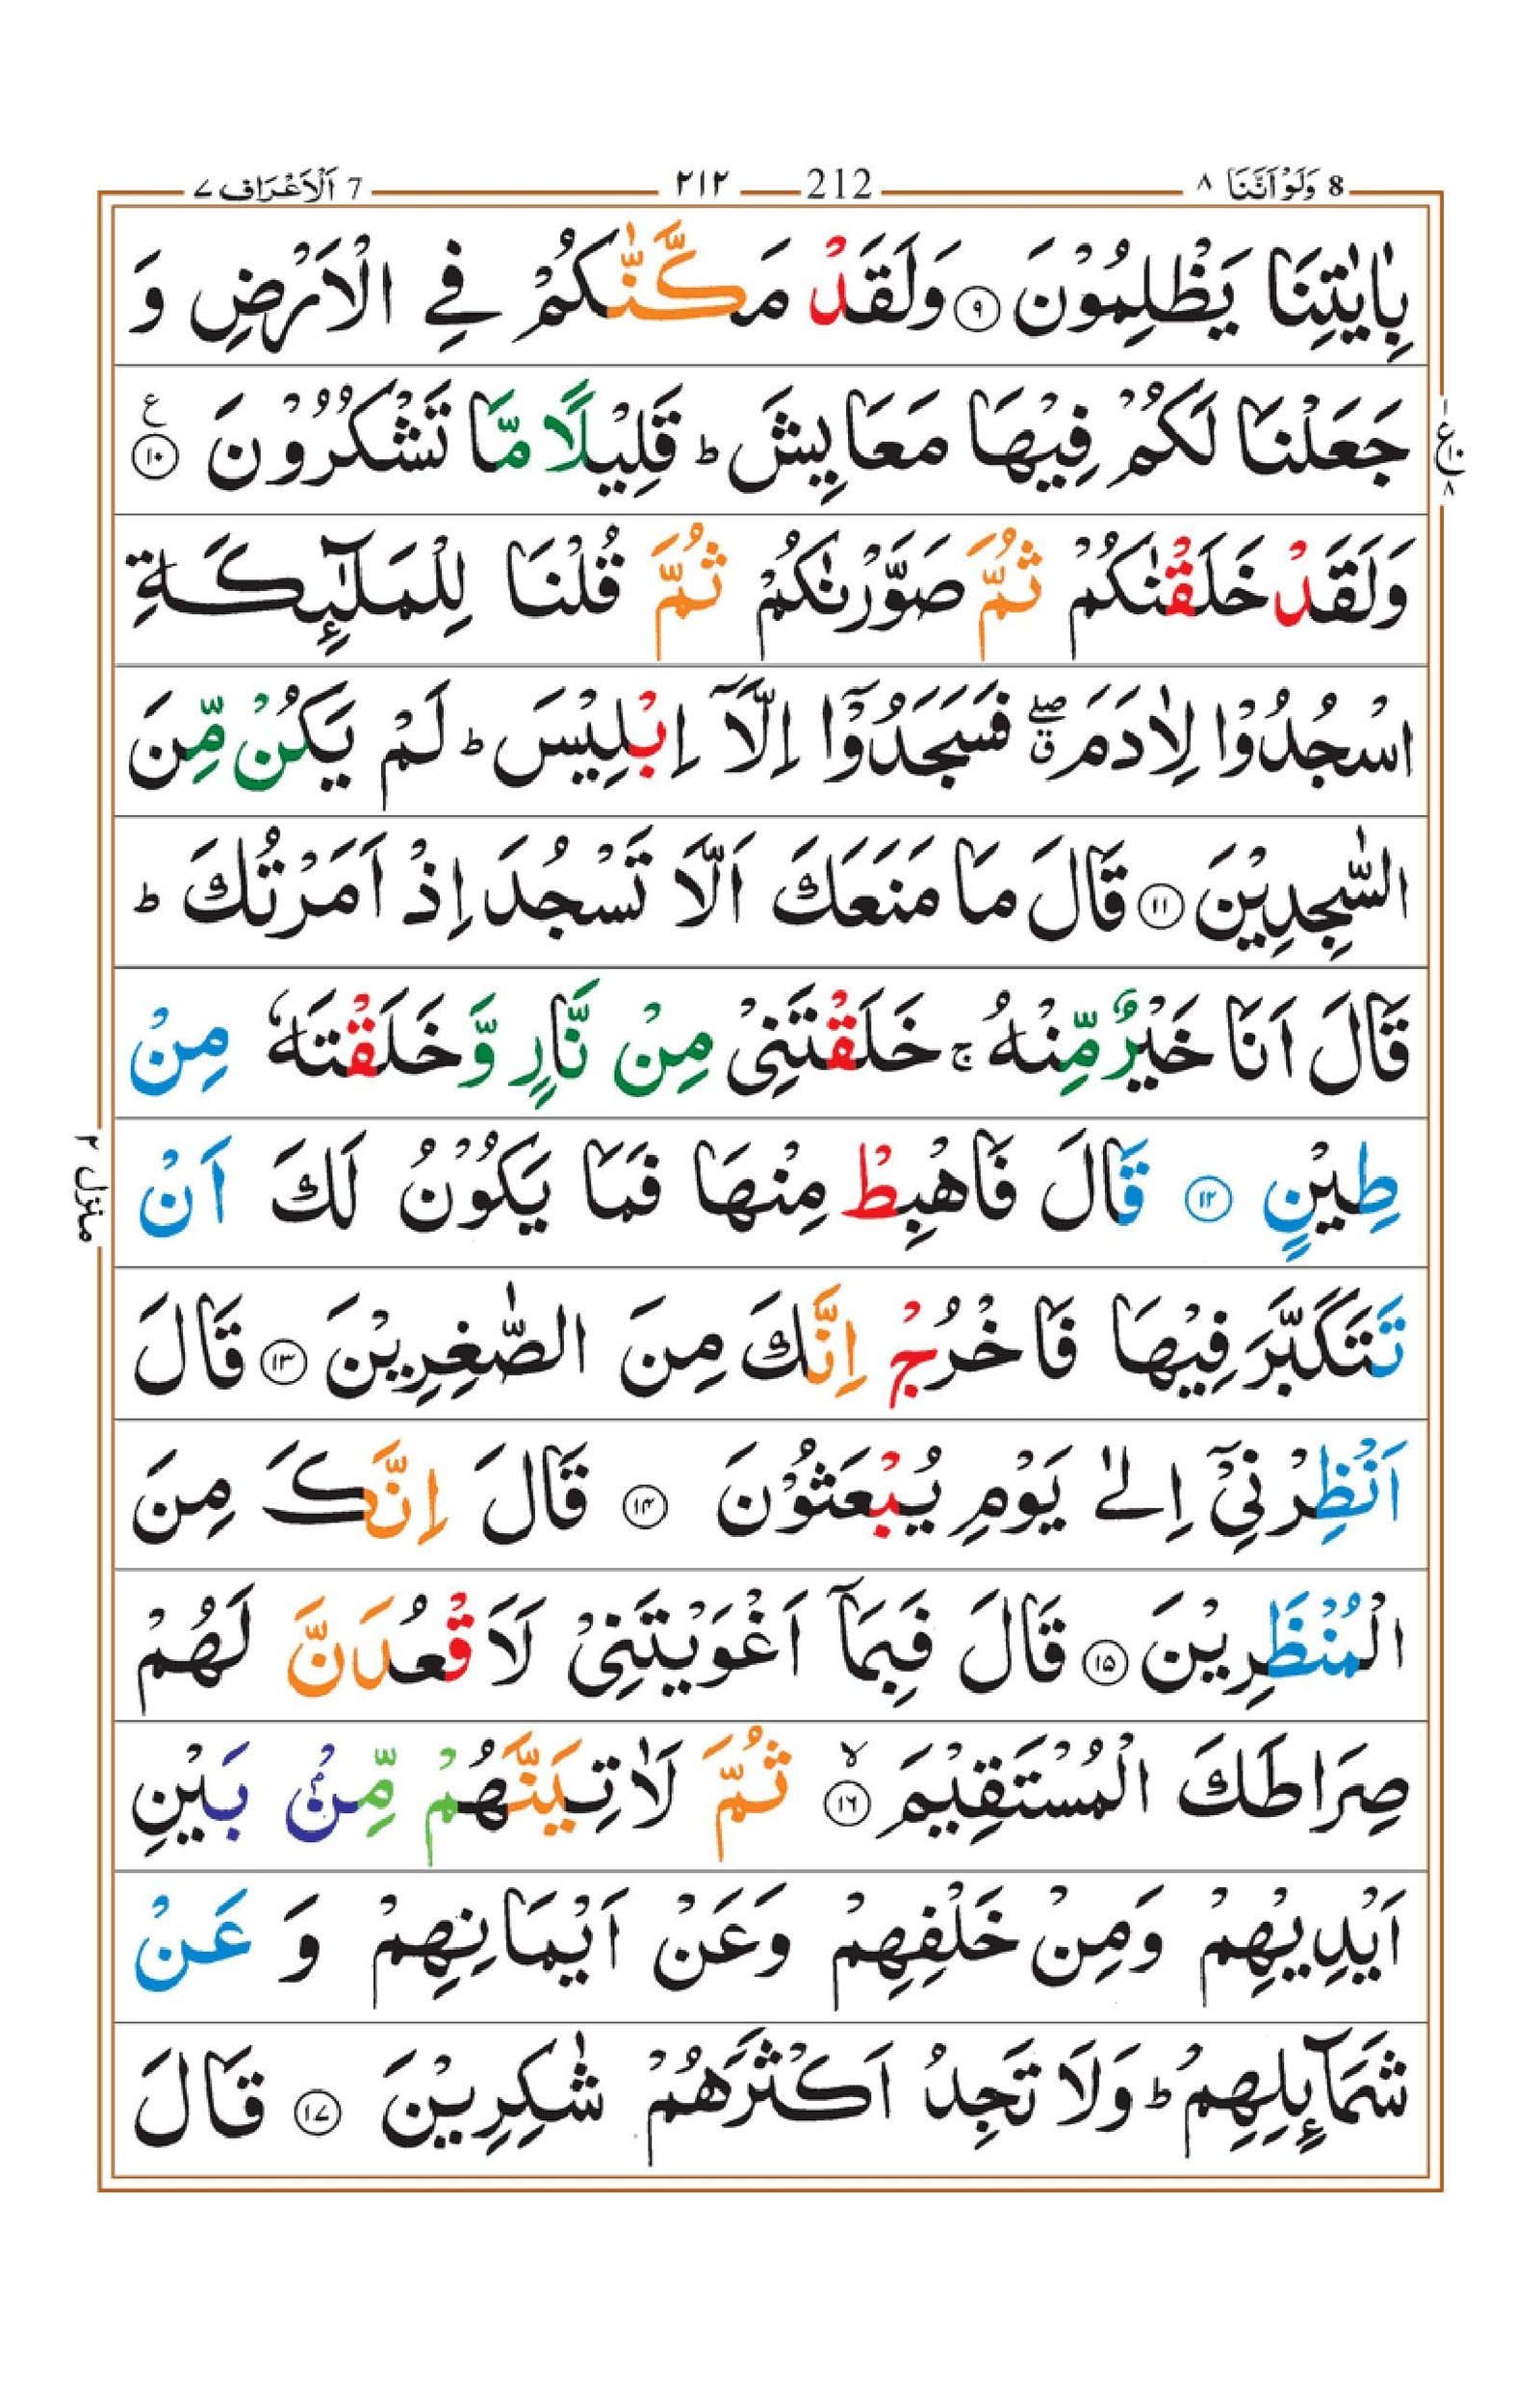 8 وَلَوْ اَنَّنَا ٨ 212 ٢١٢ 7 اَلْاَعْرَاف ٧
بِاٰيٰتِنَا يَظْلِمُوْنَ ۹ وَلَقَدْ مَكَّنّٰكُمْ فِي الْاَرْضِ وَ
جَعَلْنَا لَكُمْ فِيْهَا مَعَايِشَ ؕ قَلِيْلًا مَّا تَشْكُرُوْنَ ۱۰ ع
وَلَقَدْ خَلَقْنٰكُمْ ثُمَّ صَوَّرْنٰكُمْ ثُمَّ قُلْنَا لِلْمَلٰٓئِكَةِ
اسْجُدُوْا لِاٰدَمَ ۖق فَسَجَدُوْٓا اِلَّآ اِبْلِيْسَ ؕ لَمْ يَكُنْ مِّنَ
السّٰجِدِيْنَ ۱۱ قَالَ مَا مَنَعَكَ اَلَّا تَسْجُدَ اِذْ اَمَرْتُكَ ؕ
قَالَ اَنَا خَيْرٌ مِّنْهُ ۚ خَلَقْتَنِيْ مِنْ نَّارٍ وَّ خَلَقْتَهٗ مِنْ
طِيْنٍ ۱۲ قَالَ فَاهْبِطْ مِنْهَا فَمَا يَكُوْنُ لَكَ اَنْ
تَتَكَبَّرَ فِيْهَا فَاخْرُجْ اِنَّكَ مِنَ الصّٰغِرِيْنَ ۱۳ قَالَ
اَنْظِرْنِيْٓ اِلٰى يَوْمِ يُبْعَثُوْنَ ۱۴ قَالَ اِنَّكَ مِنَ
الْمُنْظَرِيْنَ ۱۵ قَالَ فَبِمَآ اَغْوَيْتَنِيْ لَاَقْعُدَنَّ لَهُمْ
صِرَاطَكَ الْمُسْتَقِيْمَ ۱۶ ۙ ثُمَّ لَاٰتِيَنَّهُمْ مِّنْۢ بَيْنِ
اَيْدِيْهِمْ وَمِنْ خَلْفِهِمْ وَعَنْ اَيْمَانِهِمْ وَ عَنْ
شَمَآئِلِهِمْ ؕ وَلَا تَجِدُ اَكْثَرَهُمْ شٰكِرِيْنَ ۱۷ قَالَ
ع ١ ١٠ ٨
منزل ۲